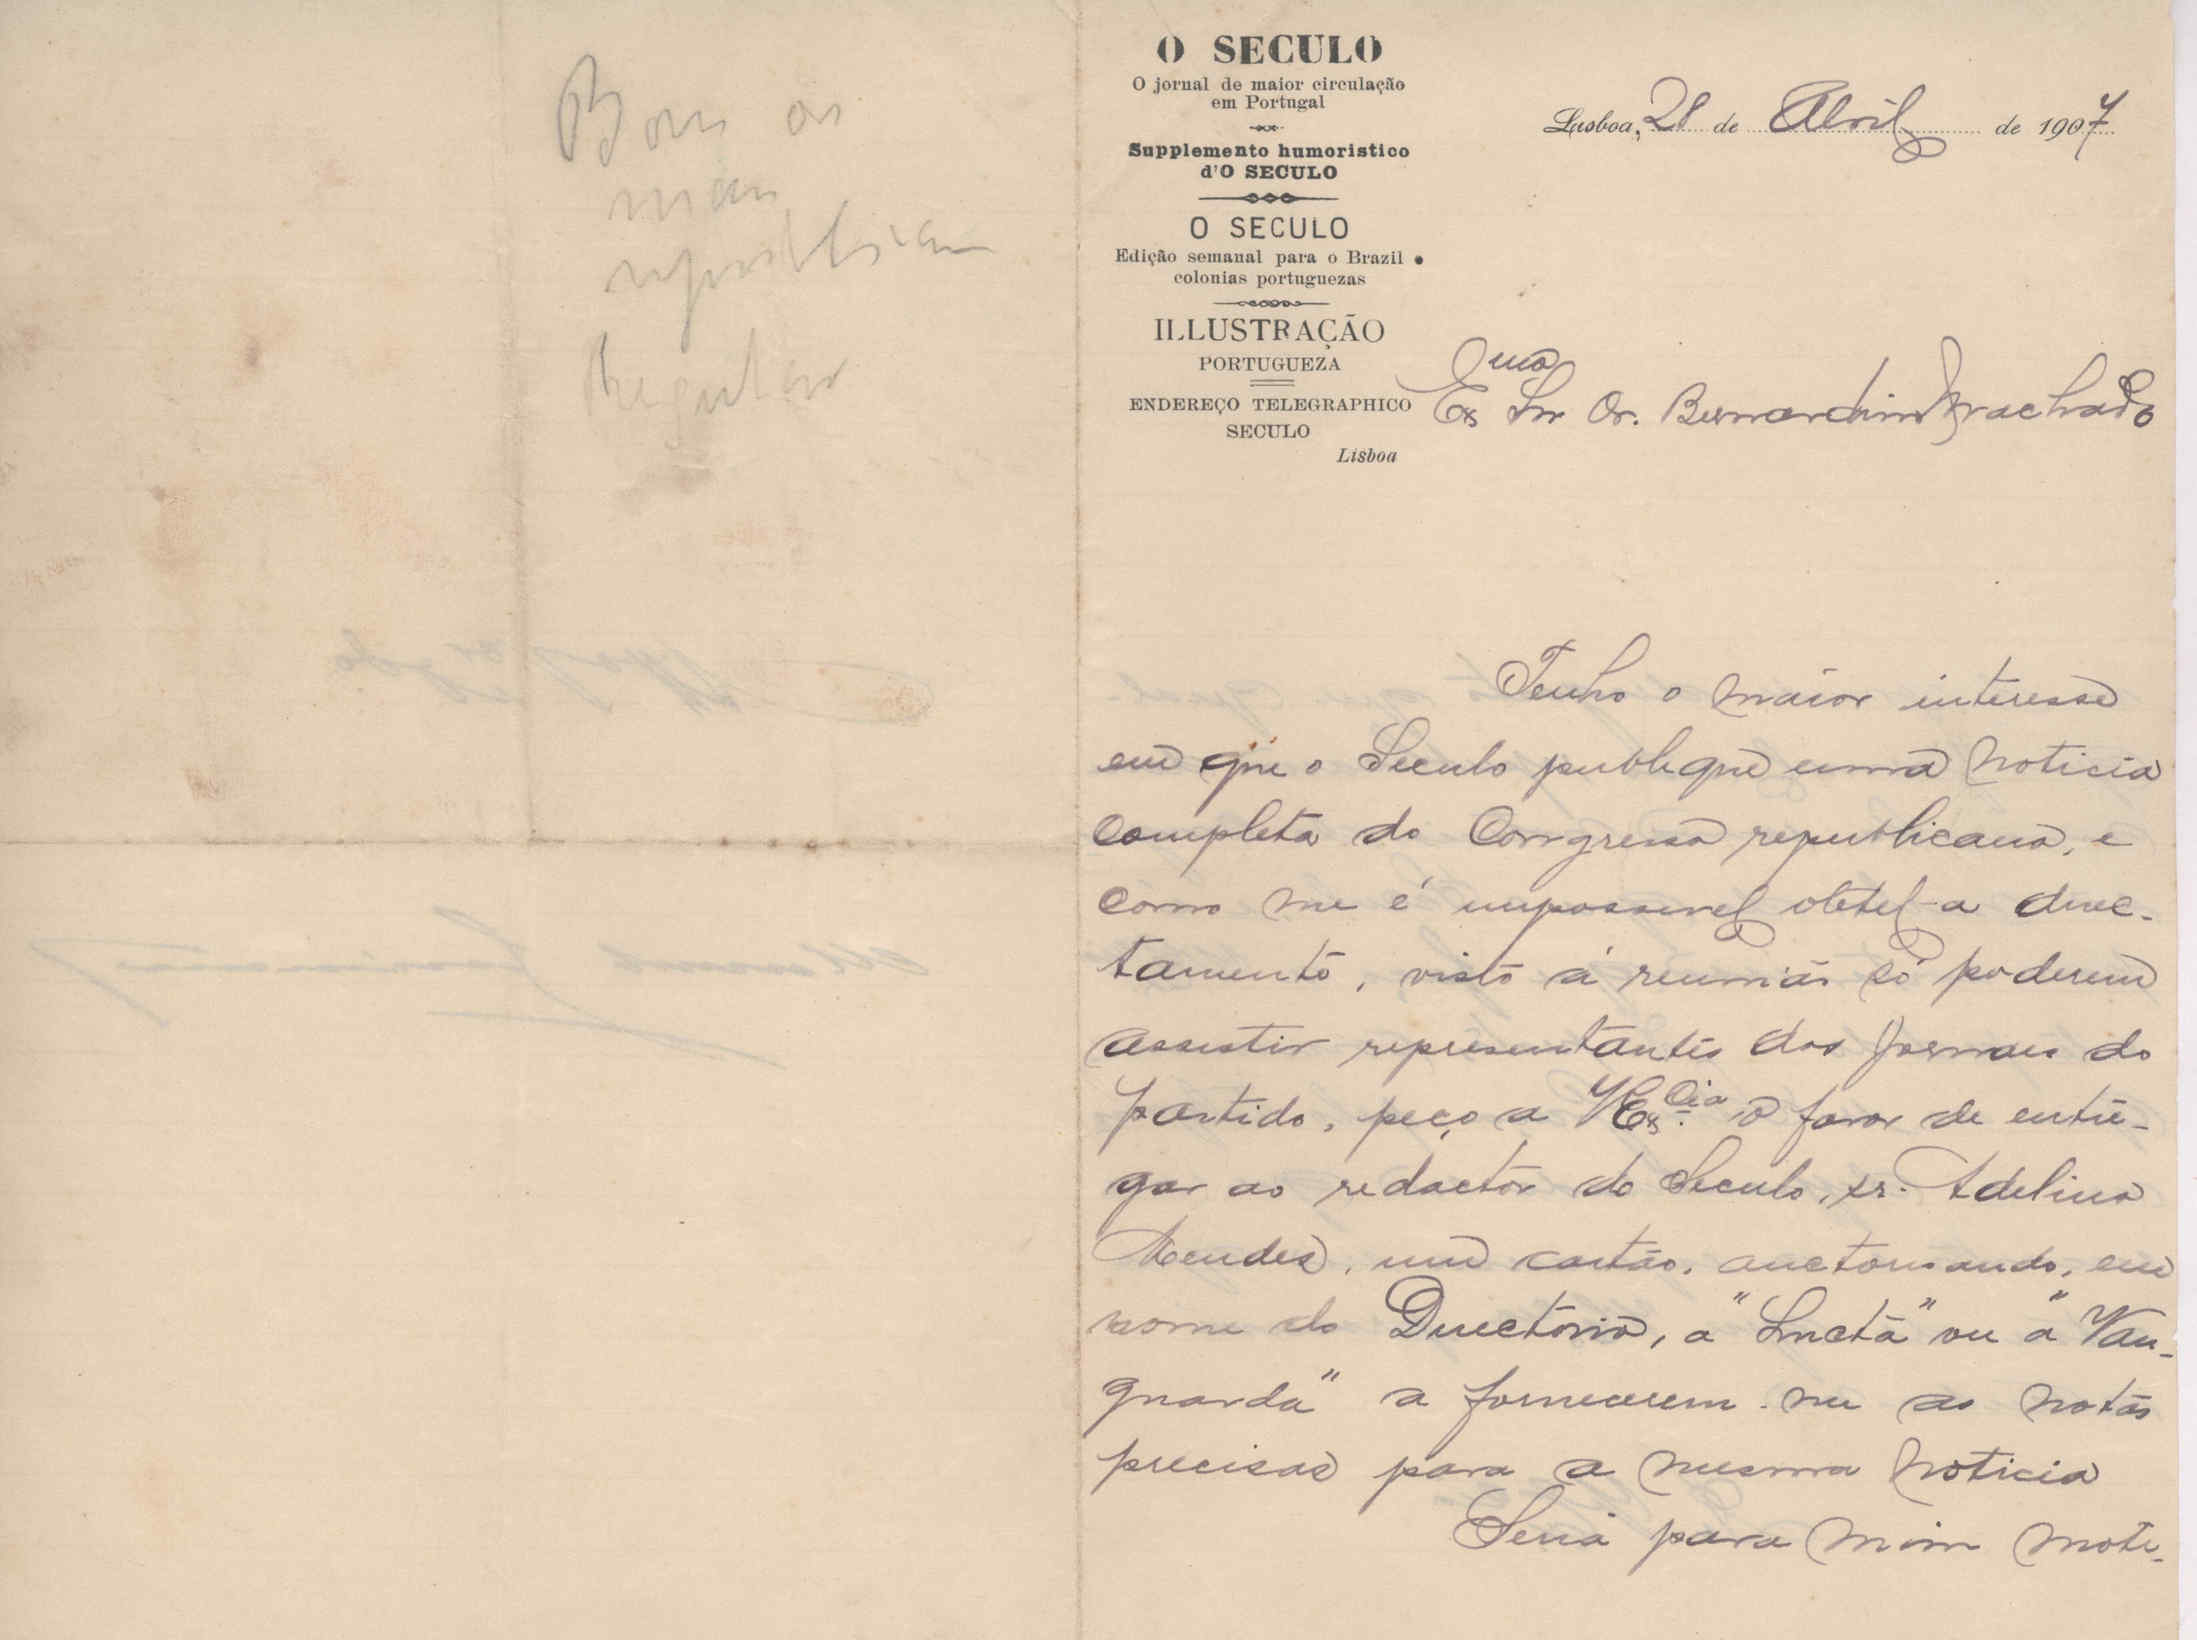 Bom os
mau
republicano
Regular
O SECULO
O jornal de maior circulação
em Portugal
Supplemento humoristico
d'O SECULO
O SECULO
Edição semanal para o Brazil e
colonias portuguezas
ILLUSTRAÇÃO
PORTUGUEZA
ENDEREÇO TELEGRAPHICO
SECULO
Lisboa
Lisboa, 28 de Abril de 1907
Exmo Snr Dr. Bernardino Machado
Tenho o maior interesse
em que o Seculo publique uma noticia
completa do Congresso republicano, e
como me é impossivel obtel-a direc-
tamente, visto á reunião só poderem
assistir representantes dos jornaes do
partido, peço a V Excia o favor de entre-
gar ao redactor do Seculo, sr. Adelino
Mendes, um cartão, auctorisando, em
nome do Directorio, a "Lucta" ou a "Van-
guarda" a fornecerem-me as notas
precisas para a mesma noticia
Seria para mim moti-